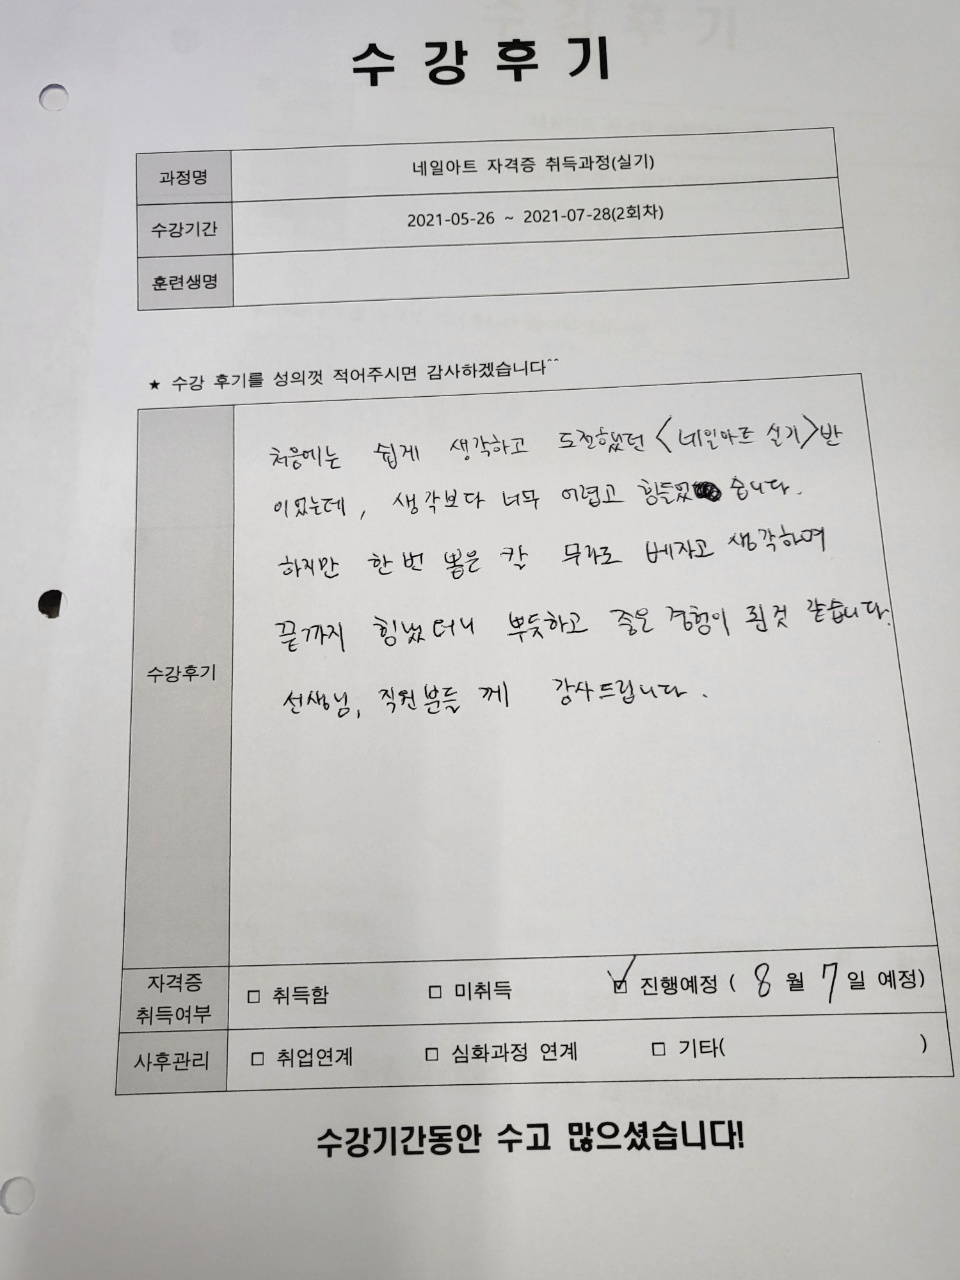 수강후기
과정명 네일아트 자격증 취득과정(실기)
수강기간 2021-05-26 ~ 2021-07-28(2회차)
훈련생명
★ 수강 후기를 성의껏 적어주시면 감사하겠습니다^^
처음에는 쉽게 생각하고 도전했었던 <네일아트 실기>반
이었는데, 생각보다 너무 어렵고 힘들었습니다.
하지만 한번 뽑은 칼 무라도 베자고 생각하며
끝까지 힘냈더니 뿌듯하고 좋은 경험이 된것 같습니다.
수강후기
선생님, 직원분들 께 감사드립니다.
자격증 취득여부 □ 취득함 □ 미취득 ☑ 진행예정 ( 8 월 7 일 예정)
사후관리 □ 취업연계 □ 심화과정 연계 □ 기타( )
수강기간동안 수고 많으셨습니다!